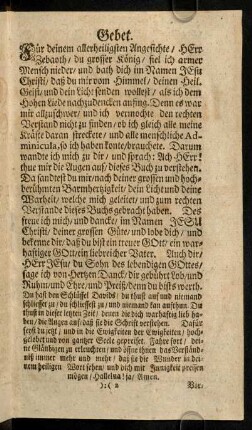 Gebet.
Für deinem allerheiligsten Angesichte/ HErr
Zebaoth/ du grosser König/ fiel ich armer
Mensch nieder/ und bath dich im Namen JEsu
Christi/ daß du mir vom Himmel/ deinen Heil.
Geist/ und dein Licht senden woltest/ als ich dem
Hohen Liede nachzudencken anfing. Denn es war
mir allzuschwer/ und ich vermochte den rechten
Verstand nicht zu finden/ ob ich gleich alle meine
Kräfte daran streckete/ und alle menschliche Ad-
minicula, so ich haben konte/ brauchete. Darum
wandte ich mich zu dir/ und sprach: Ach HErr!
thue mir die Augen auf/ dieses Buch zu verstehen.
Da sandtest du mir nach deiner grossen und hoch-
berühmten Barmhertzigkeit/ dein Licht und deine
Warheit/ welche mich geleitet/ und zum rechten
Verstande dieses Buchs gebracht haben. Des
freue ich mich/ und dancke/ im Namen JESU
Christi/ deiner grossen Güte/ und lobe dich/ und
bekenne dir/ daß du bist ein treuer GOtt/ ein war-
haftiger GOtt ein lieb reicher Vater. Auch dir/
HErr JEsu/ du Sohn des lebendigen GOttes/
sage ich von Hertzen Danck/ dir gebührt Lob/ und
Ruhm/ und Ehre/ und Preiß/ denn du bists werth.
Du hast den Schlüssel Davids/ du thust auf/ und niemand
schliesset zu/ du schliessest zu/ und niemand kan aufthun. Du
thust in dieser letzten Zeit/ denen die dich warhaftig lieb ha-
ben/ die Augen auf/ daß sie die Schrift verstehen. Dafür
seyst du jetzt/ und in die Ewigkeiten der Ewigkeiten/ hoch-
gelobet/ und von gantzer Seele gepreiset. Fahre fort/ dei-
ne Gläubigen zu erleuchten/ und öffne ihnen das Verständ-
niß immer mehr und mehr/ daß sie die Wunder in dei-
nem heiligen Wort sehen/ und dich mit Innigkeit preisen
mögen/ Halleluja/ ja/ Amen.
):( 2
Vor-